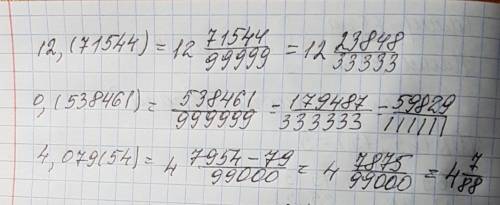 12,(71544) = 12 71544/99999 = 12 23848/33333
0,(538461) = 538461/999999 = 179487/333333 = 59829/111111
4,079(54) = 4 7954-79/99000 = 4 7875/99000 = 4 7/88